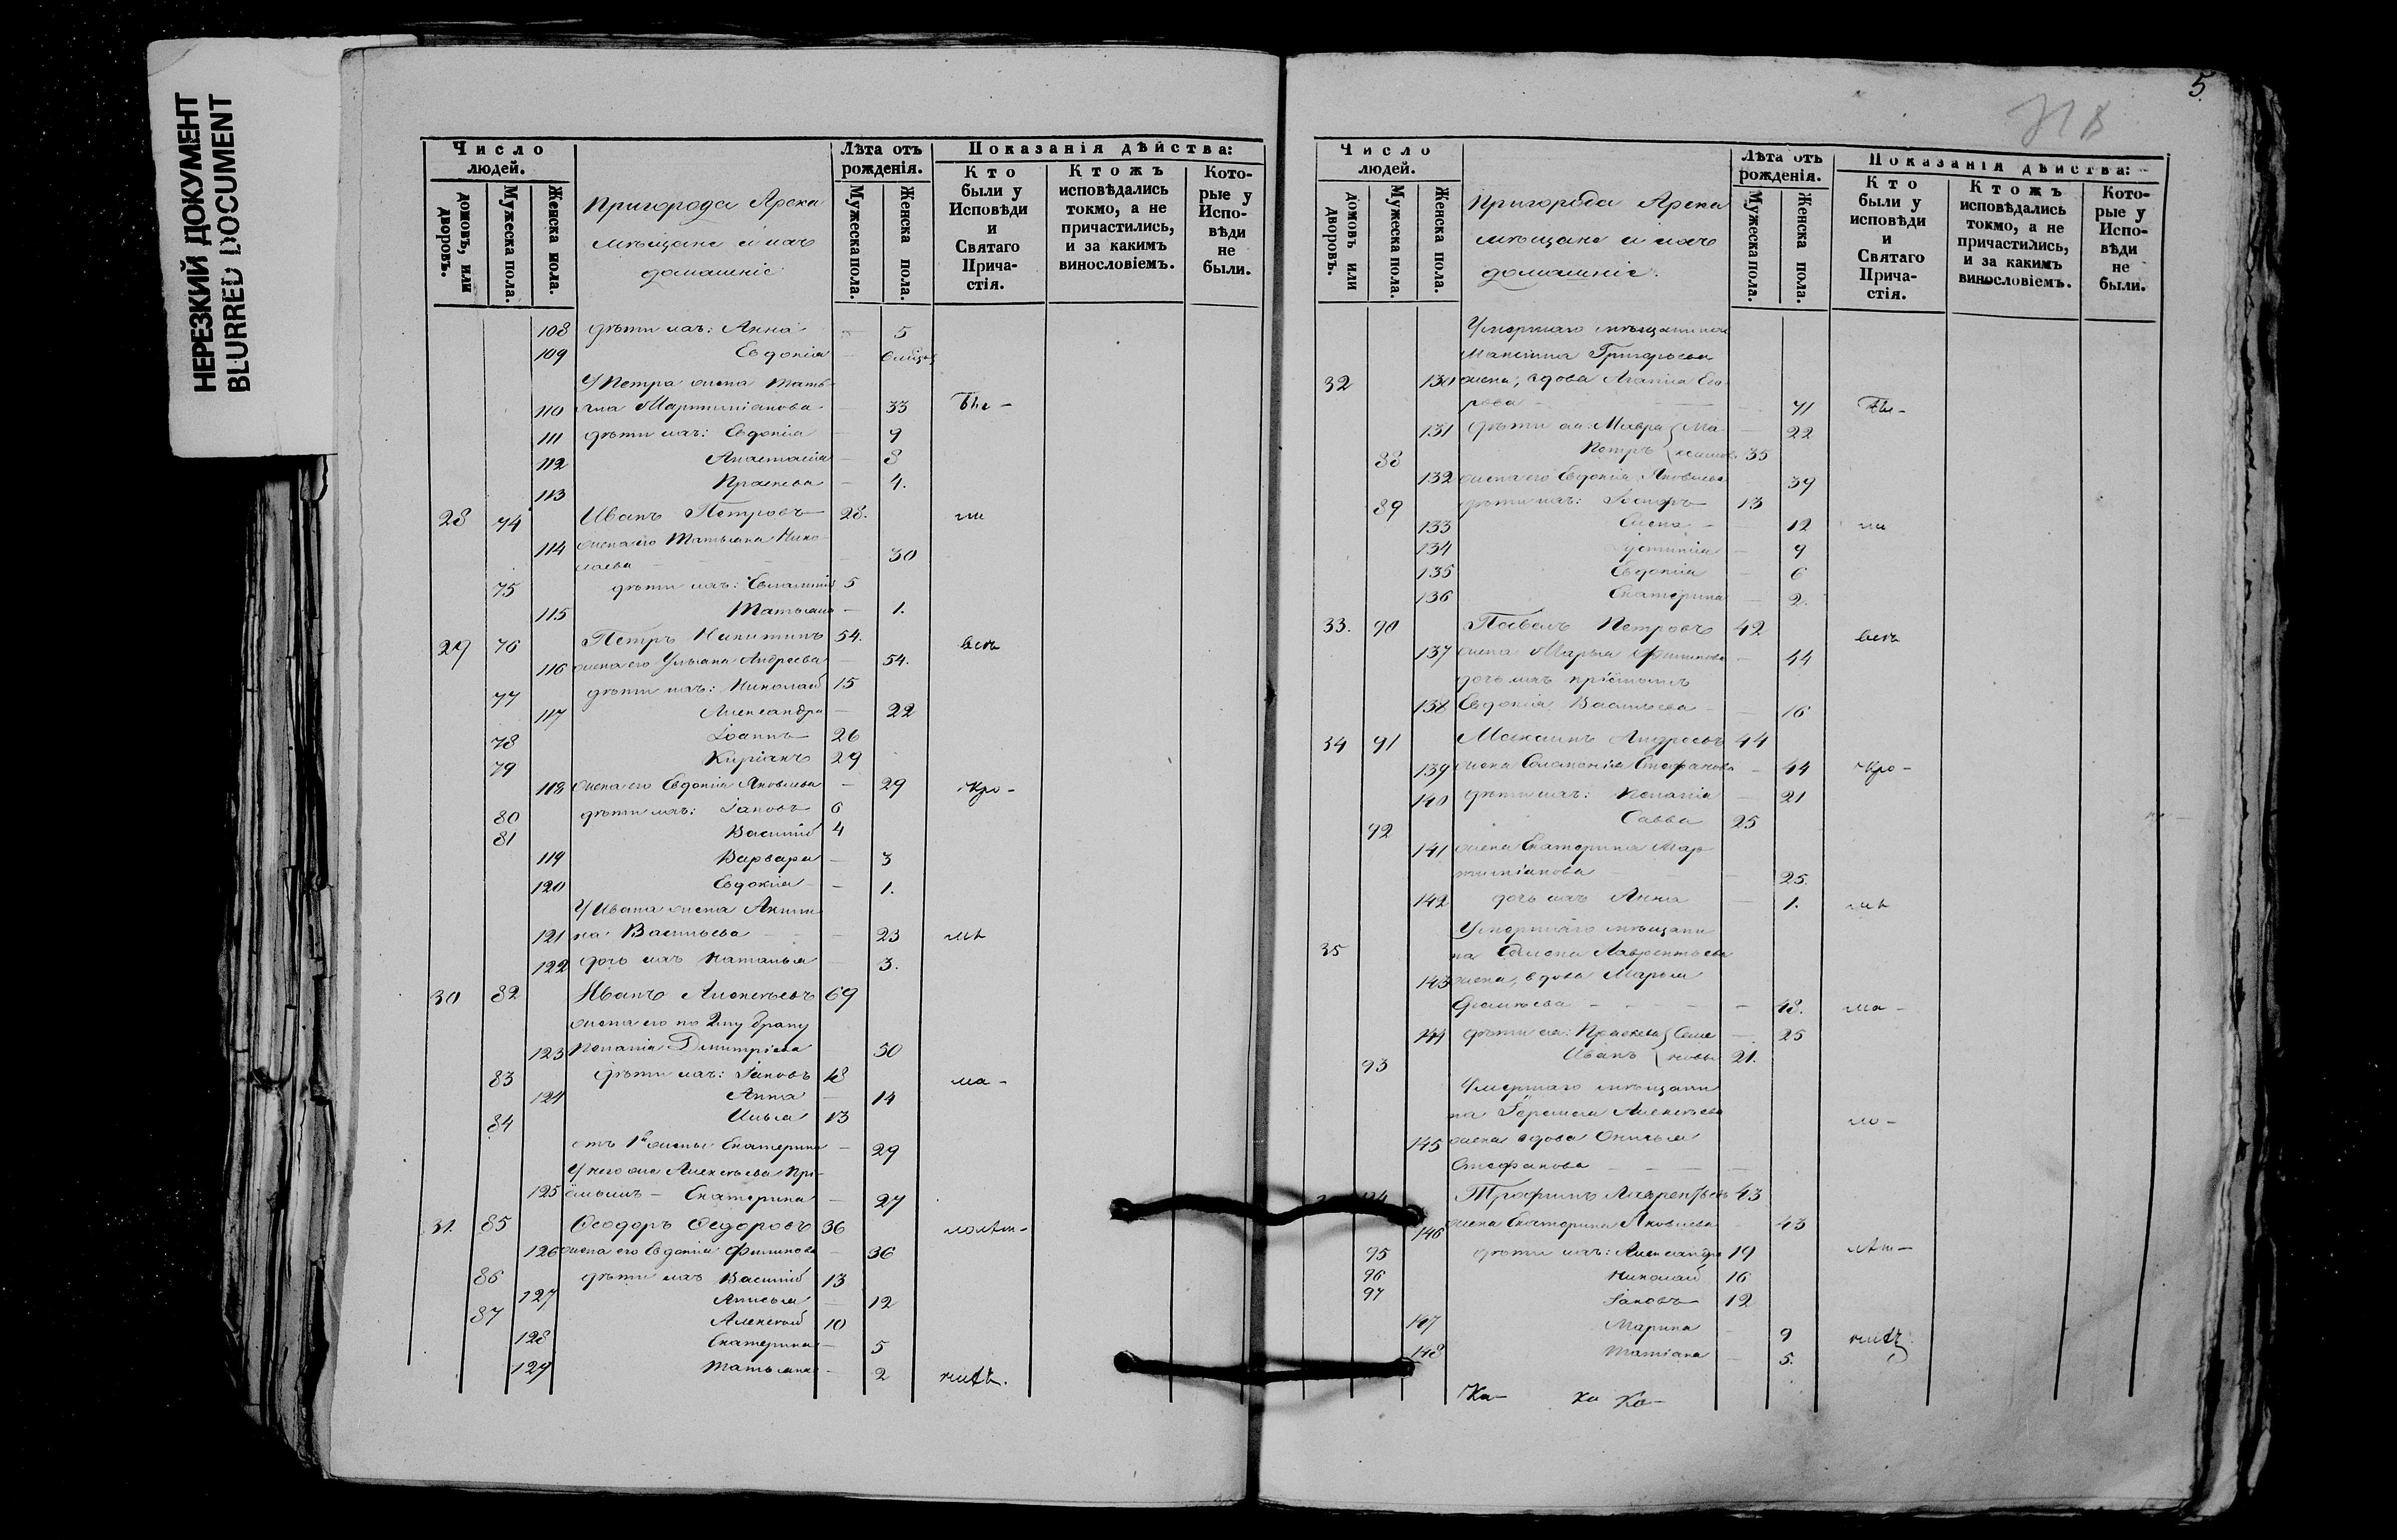 НЕРЕЗКИЙ ДОКУМЕНТ
BLURRED DOCUMENT
Число людей.
домовъ, или дворовъ.
Мужеска пола.
Женска пола.
Пригорода Арска
мѣщане и ихъ
домашніе
Лѣта отъ рожденія.
Мужеска пола.
Женска пола.
Показанія дѣйства:
Кто были у Исповѣди и Святаго Прича-стія.
Ктожъ исповѣдались токмо, а не причастились, и за какимъ винословіемъ.
Кото-рые у Испо-вѣди не были.
108 дѣти ихъ: Анна — 5
109 Евдокія —
У Петра жена Тать
110 яна Мартиніанова — 33
111 дѣти ихъ: Евдокія — 9
112 Анастасія — 8
113 Праскева — 4.
28 74 Иванъ Петровъ 28.
114 жена его Татьяна Нико
лаева — 30
75 дѣти ихъ: Евлампій 5
115 Татьяна — 1.
29 76 Петръ Никитинъ 54.
116 жена его Ульяна Андреева — 54.
77 дѣти ихъ: Николай 15
117 Александра — 22
78 Іоаннъ 26
79 Кипріанъ 29
118 жена его Евдокія Яковлева — 29
80 дѣти ихъ: Іаковъ 6
81 Василій 4
119 Варвара — 3
120 Евдокія — 1.
У Ивана жена Акили
121 на Васильева — 23
122 дочь ихъ Наталья — 3.
30 82 Иванъ Алексѣевъ 69
жена его по 2му браку
123 Пелагія Димитріева 50
83 дѣти ихъ: Іаковъ 18
124 Анна — 14
84 Илья 13
отъ 1й жены Екатерина — 29
У него же Алексѣева Прі-
125 ёмышъ — Екатерина — 27
31. 85 Ѳеодоръ Ѳедоровъ 36
126 жена его Евдокія Филипова — 36
86 дѣти ихъ Василій 13
127 Анисья — 12
87 Алексѣй 10
128 Екатерина — 5
129 Татьяна — 2
5.
Число людей.
домовъ или дворовъ.
Мужеска пола.
Женска пола.
Пригорода Арска
мѣщане и ихъ
домашніе.
Лѣта отъ рожденія.
Мужеска пола.
Женска пола.
Показанія дѣйства:
Кто были у исповѣди и Святаго Прича-стія.
Ктожъ исповѣдались токмо, а не причастились, и за какимъ винословіемъ.
Кото-рые у Испо-вѣди не были.
Умершаго мѣщанина
Максима Григорьева
32 130 жена, вдова Агапія Его
рова — 71
131 дѣти ея: Мавра Ма- — 22
88 Петръ ксимов. 35
132 жена его Евдокія Яковлева 39
89 дѣти ихъ: 13
133 Елена — 12
134 Іустинія — 9
135 Евдокія — 6
136 Екатерина — 2.
33. 90 Павелъ Петровъ 42
137 жена Марья Филипова — 44
дочь ихъ пріёмышъ
138 Евдокія Васильева — 16
34 91 Максимъ Андреевъ 44
139 жена Соломонія Стефанова — 44
140 дѣти ихъ: Пелагія — 21
92 Савва 25
141 жена Екатерина Мар
тиніанова — 25.
142 дочь ихъ Анна — 1.
Умершаго мѣщани
35 на Симеона Лаврентьева
143 жена, вдова Марья
— 48.
144 дѣти ея: Праскева Семе — 25
93 Иванъ новы 21.
Умершаго мѣщани
на Еремея Алексѣева
145 жена вдова
Стефанова —
Трофимъ Лаврентьевъ 43
146 жена Екатерина Яковлева 43
95 дѣти ихъ: Александръ 19
96 Николай 16
97 Іаковъ 12
147 Марина — 9
148 Татіана — 5.